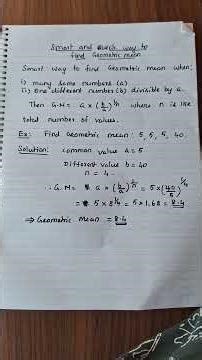 Smart and Quick way to
find Geometric mean
Smart way to find Geometric mean when:
i) many same numbers (a)
ii) One different number (b) divisible by a.
Then G.M = a × (b/a)^1/n where n is the
total number of values.
Ex: Find Geometric mean: 5, 5, 5, 40.
Solution: Common value a = 5
Different value b = 40
n = 4
∴ G.M = a × (b/a)^1/n = 5 × (40/5)^1/4
= 5 × 8^1/4 = 5 × 1.68 = 8.4
⇒ Geometric mean = 8.4